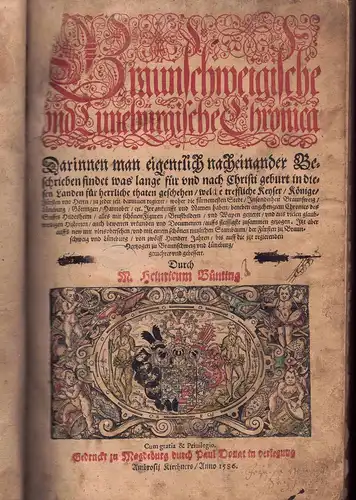 Braunschweigische
und Lüneburgische Chronica
Darinnen man eigentlich nacheinander Be-
schrieben findet was lange für vnd nach Christi geburt in die-
sen Landen für herrliche thaten geschehen / welche treffliche Keyser / Könige /
Fürsten vnd Herrn / zu jeder zeit darinnen regieret / woher die fürnemesten Stedt / Braunschweig /
Lüneburg / Göttingen / Hannouer / etc. Chronica des
Stiffts Hildesheim / alles mit schönen Figuren / vnd Wapen gezieret / vnd aus vielen glaub-
wirdigen vnd bewerten scribenten vnd Documenten / auffs fleissigst zusammen gezogen. Itzt aber
auffs new mit vnd mit einem schönen Stambaum / der Fürsten zu Braun-
schweig vnd Lüneburg / von zwölff Hundert Jahren / bis auff die itzt regierenden
Hertzogen zu Braunschweig vnd Lüneburg /
gemehret vnd gebessert.
Durch
M. Heinricum Bünting.
Cum gratia & Priuilegio.
Gedruckt zu Magdeburg durch Paul Donat in verlegung
Ambrosij Kirchners / Anno 1586.